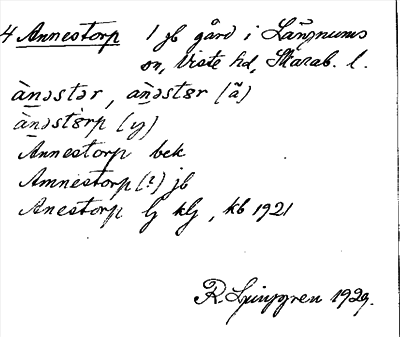 4 Annestorp 1 jb gård i Längnums
sn, Viste hd, Skarab. l.
ànəstər, ànəstər (ã)
ànəstərp (y)
Annestorp bek
Amnestorp (?) jb
Anestorp lj klj, kb 1921
R. Ljunggren 1929.